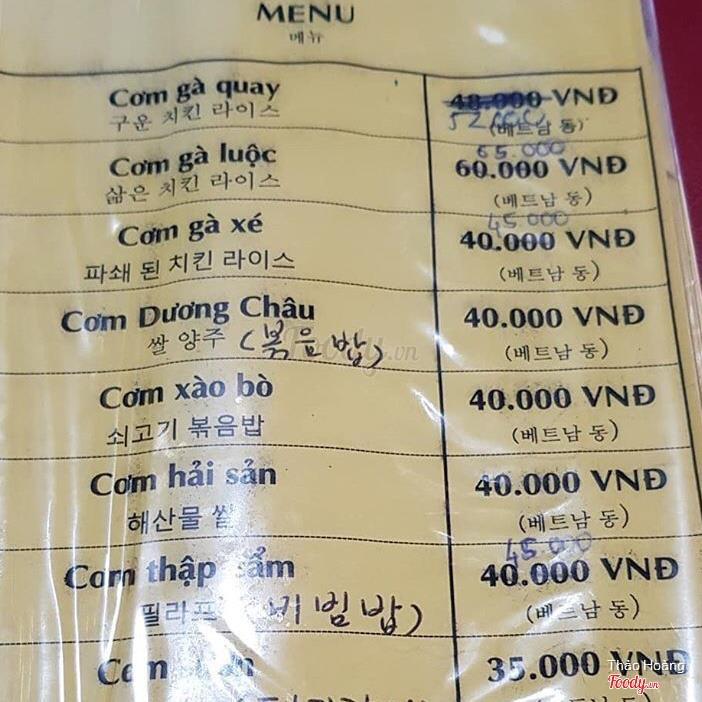 MENU
메뉴
Cơm gà quay 48.000 VNĐ
구운 치킨 라이스 52000 (베트남 동)
65.000
Cơm gà luộc 60.000 VNĐ
삶은 치킨 라이스 (베트남 동)
45.000
Cơm gà xé 40.000 VNĐ
파쇄 된 치킨 라이스 (베트남 동)
Cơm Dương Châu 40.000 VNĐ
쌀 양주 (볶음밥) (베트남 동)
Foody.vn
Cơm xào bò 40.000 VNĐ
쇠고기 볶음밥 (베트남 동)
Cơm hải sản 40.000 VNĐ
해산물 쌀 (베트남 동)
45.000
Cơm thập cẩm 40.000 VNĐ
필라프 비빔밥) (베트남 동)
Cơm 35.000 VNĐ
Thảo Hoàng
Foody.vn
(베트남 동)